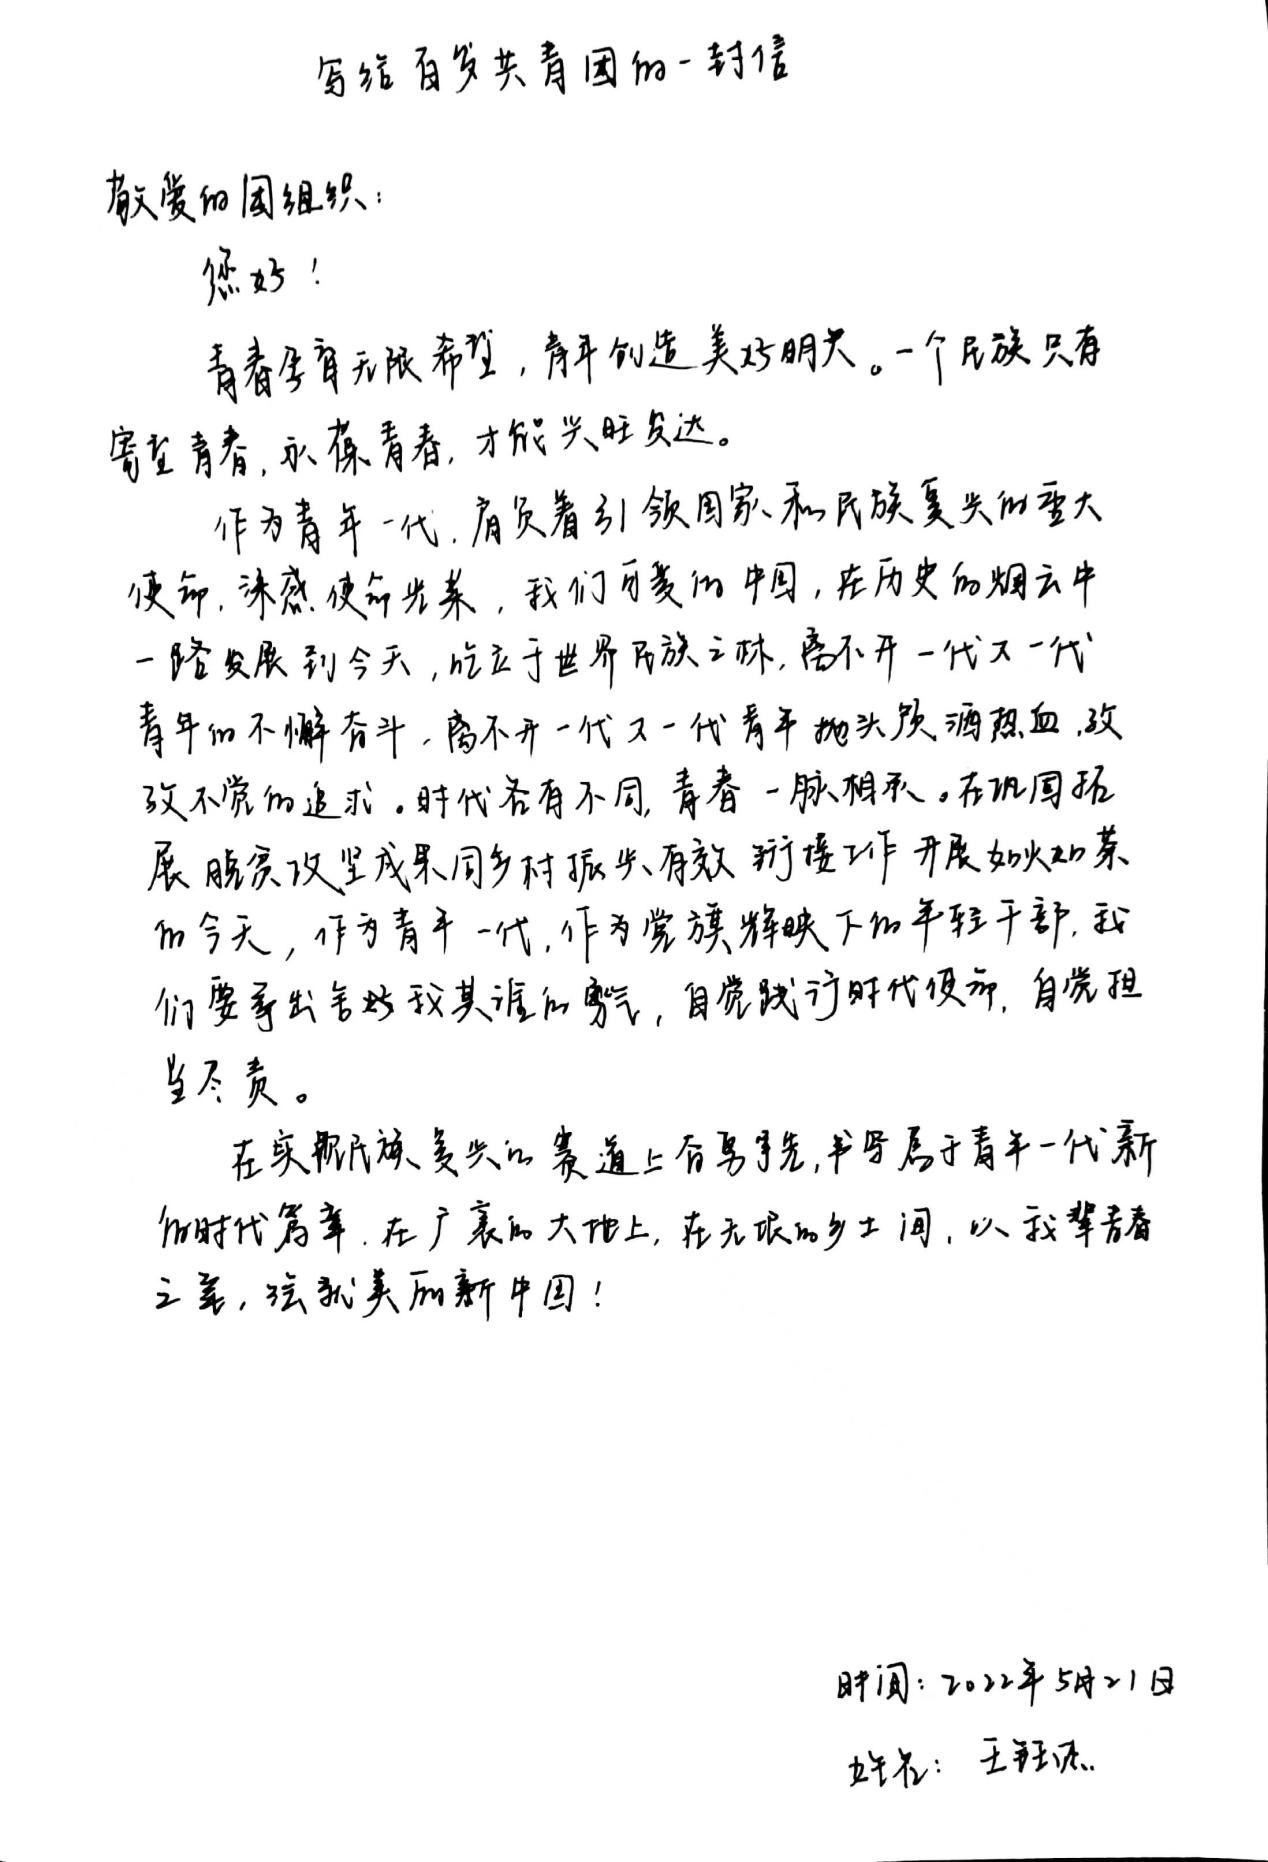 写给百岁共青团的一封信
敬爱的团组织:
您好!
青春孕育无限希望,青年创造美好明天。一个民族只有
寄望青春,永葆青春,才能兴旺发达。
作为青年一代,肩负着引领国家和民族复兴的重大
使命,深感使命光荣,我们可爱的中国,在历史的烟云中
一路发展到今天,屹立于世界民族之林,离不开一代又一代
青年的不懈奋斗,离不开一代又一代青年抛头颅洒热血,孜
孜不觉的追求。时代各有不同,青春一脉相承。在巩固拓
展脱贫攻坚成果同乡村振兴有效衔接工作开展如火如荼
的今天,作为青年一代,作为党旗辉映下的年轻干部,我
们要拿出舍我其谁的勇气,自觉践行时代使命,自觉担
当尽责。
在实现民族复兴的赛道上奋勇争先,书写属于青年一代新
的时代篇章,在广袤的大地上,在无垠的乡土间,以我辈青春
之笔,绘就美丽新中国!
时间:2022年5月21日
姓名:王钰